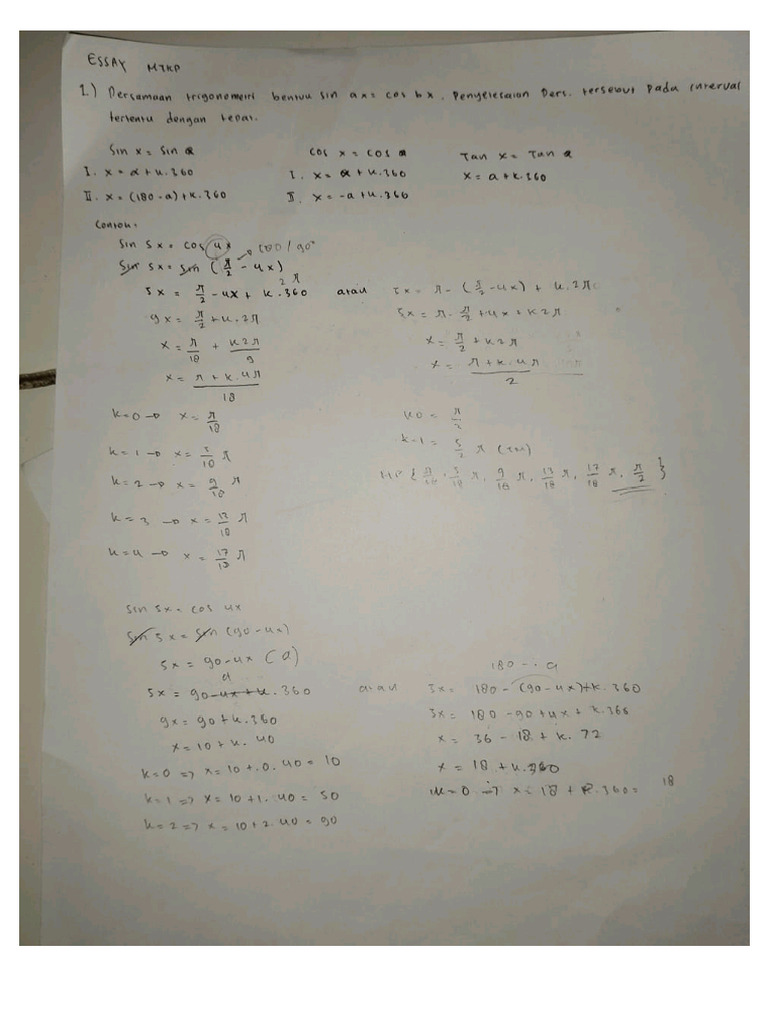 ESSAY MTKP
1.) Persamaan trigonometri bentuk sin ax = cos bx. Penyelesaian Pers. tersebut pada interval
tertentu dengan tepat.
Sin x = Sin a
I. x = a + k.360
II. x = (180 - a) + k.360
cos x = cos a
I. x = a + k.360
II. x = -a + k.360
Tan x = Tan a
x = a + k.360
Contoh:
Sin 5x = cos 4x → 180/90°
Sin 5x = sin (π/2 - 4x)
5x = π/2 - 4x + k.360 2π
9x = π/2 + k.2π
x = π/18 + k2π/9
x = π + k.4π / 18
k=0 → x = π/18
k=1 → x = 5/18 π
k=2 → x = 9/18 π
k=3 → x = 13/18 π
k=4 → x = 17/18 π
atau
5x = π - (π/2 - 4x) + k.2π
5x = π - π/2 + 4x + k2π
x = π/2 + k2π
x = π + k.4π / 2
k0 = π/2
k-1 = 5/2 π (TM)
HP { π/18, 5/18 π, 9/18 π, 13/18 π, 17/18 π, π/2 }
Sin 5x = cos 4x
Sin 5x = sin (90-4x)
5x = 90-4x (a)
a
5x = 90-4x+k.360
9x = 90+k.360
x = 10 + k. 40
k=0 => x = 10 + .0. 40 = 10
k=1 => x = 10 + 1. 40 = 50
k=2 => x = 10 + 2. 40 = 90
atau
180 - . a
5x = 180 - (90-4x)+k.360
5x = 180 - 90 + 4x + k.360
x = 36 - 18 + k. 72
x = 18 + k.360
k=0 → x = 18 + k.360 = 18